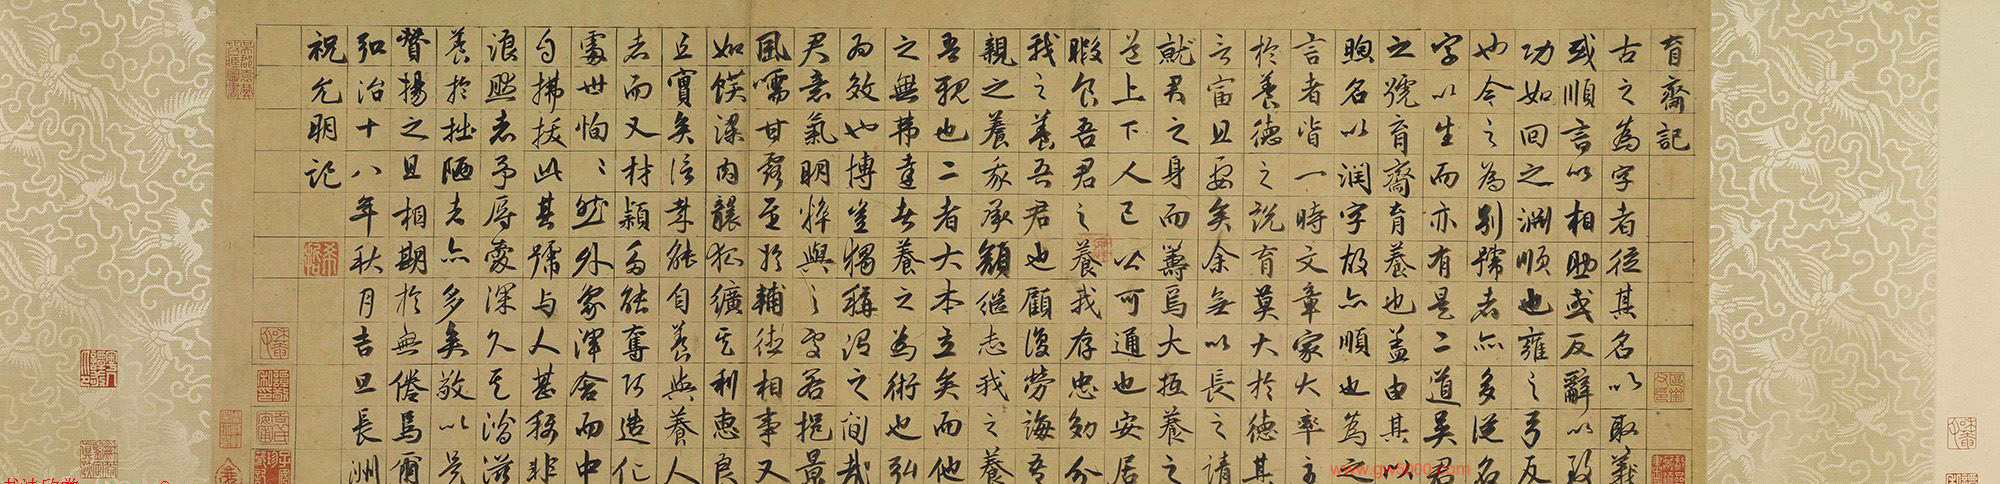 育齋記
古之為字者從其名以取義
或順言以相助或反辭以致
功如回之淵順也雍之弓反
也今之為别號者亦多從名
字以生而亦有是二道吳君
之號育齋育養也盖由其以
煦名以潤字故亦順也為之
言者皆一時文章家大率主
於養德之說育莫大於德其
言富且要矣余無以長之請
就君之身而籌焉大抵養之
道上下人己公可通也安居
暇食吾君之養我存忠効分
我之養吾君也顧復勞誨吾
親之養我承顏繼志我之養
吾親也二者大本立矣而他
之無弗達者養之為術也弘
為效也博豈獨稱之間哉
君意氣明粹與之處若挹景
風嚅甘露至於輔德相事又
如饌內纊其利惠良
且實矣信能自養與養人
者而又材穎多能奪巧造化
處世恂〻然外象渾含而中
自拂拔此其號与人甚稱非
浪然者予辱愛深久其滋
養於拙陋者亦多矣敬以是
贊揚之且相期於無倦焉爾
弘治十八年秋月吉旦長洲
祝允明記
www.gw5000.com